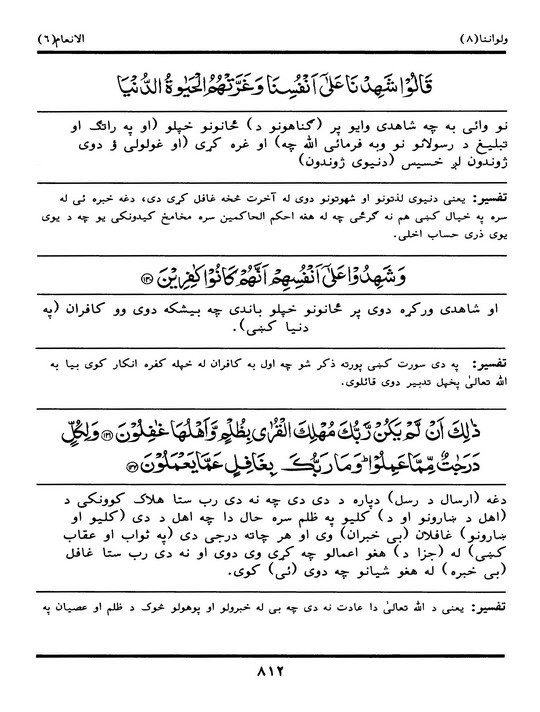 ولواننا(۸)
الانعام(٦)
قَالُوْا شَهِدْنَا عَلٰٓى اَنْفُسِنَا وَغَرَّتْهُمُ الْحَيٰوةُ الدُّنْيَا
نو وائي به چه شاهدي وايو پر (گناهونو د) ځانونو خپلو (او په راتګ او
تبليغ د رسولانو نو وبه فرمائي الله چه) او غره کړي (او غولولي ؤ دوی
ژوندون لږ خسيس (دنيوي ژوندون)
تفسير: يعنی دنيوی لذتونو او شهوتونو دوی له آخرت څخه غافل کړی دی، دغه خبره ئی له
سره په خيال کښی هم نه ګرځی چه له هغه احکم الحاکمين سره مخامخ کيدونکی يو چه د يوی
يوی ذری حساب اخلی.
وَشَهِدُوْا عَلٰٓى اَنْفُسِهِمْ اَنَّهُمْ كَانُوْا كٰفِرِيْنَ ﴿۱۳۰﴾
او شاهدی ورکړه دوی پر ځانونو خپلو باندی چه بيشکه دوی وو کافران (په
دنيا کښی).
تفسير: په دی سورت کښی پورته ذکر شو چه اول به کافران له خپله کفره انکار کوی بيا به
الله تعالیٰ پخپل تدبير دوی قائلوی.
ذٰلِكَ اَنْ لَّمْ يَكُنْ رَّبُّكَ مُهْلِكَ الْقُرٰى بِظُلْمٍ وَّاَهْلُهَا غٰفِلُوْنَ ﴿۱۳۱﴾ وَلِكُلٍّ
دَرَجٰتٌ مِّمَّا عَمِلُوْا ؕ وَمَا رَبُّكَ بِغَافِلٍ عَمَّا يَعْمَلُوْنَ ﴿۱۳۲﴾
دغه (ارسال د رسل) دپاره د دی دی چه نه دی رب ستا هلاک کوونکی د
(اهل د ښارونو او د) کليو په ظلم سره حال دا چه اهل د دی (کليو او
ښارونو) غافلان (بی خبران) وی او هر چاته درجی دی (په ثواب او عقاب
کښی) له (جزا د) هغو اعمالو چه کړی وی دوی او نه دی رب ستا غافل
(بی خبره) له هغو شيانو چه دوی (ئی) کوی.
تفسير: يعنی د الله تعالیٰ دا عادت نه دی چه بی له خبرولو او پوهولو څوک د ظلم او عصيان په
۸۱۲